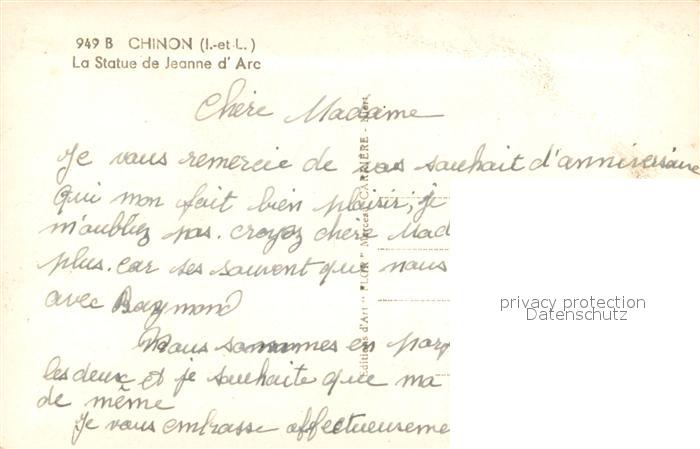 949 B CHINON (I.-et-L.)
La Statue de Jeanne d'Arc
Chère Madame
Je vous remercie de vos souhait d'anniversaire
qui mon fait bien plaisir, je
m'oubliez pas. croyez chère Mad
plus. car ses souvent que nous
avec Raymond
Nous sommes en par
les deux et je souhaite que ma
de même
Je vous embrasse affectueuseme
Editions d'Art "FLOR" Marcel CARRIÈRE - Niort
privacy protection
Datenschutz